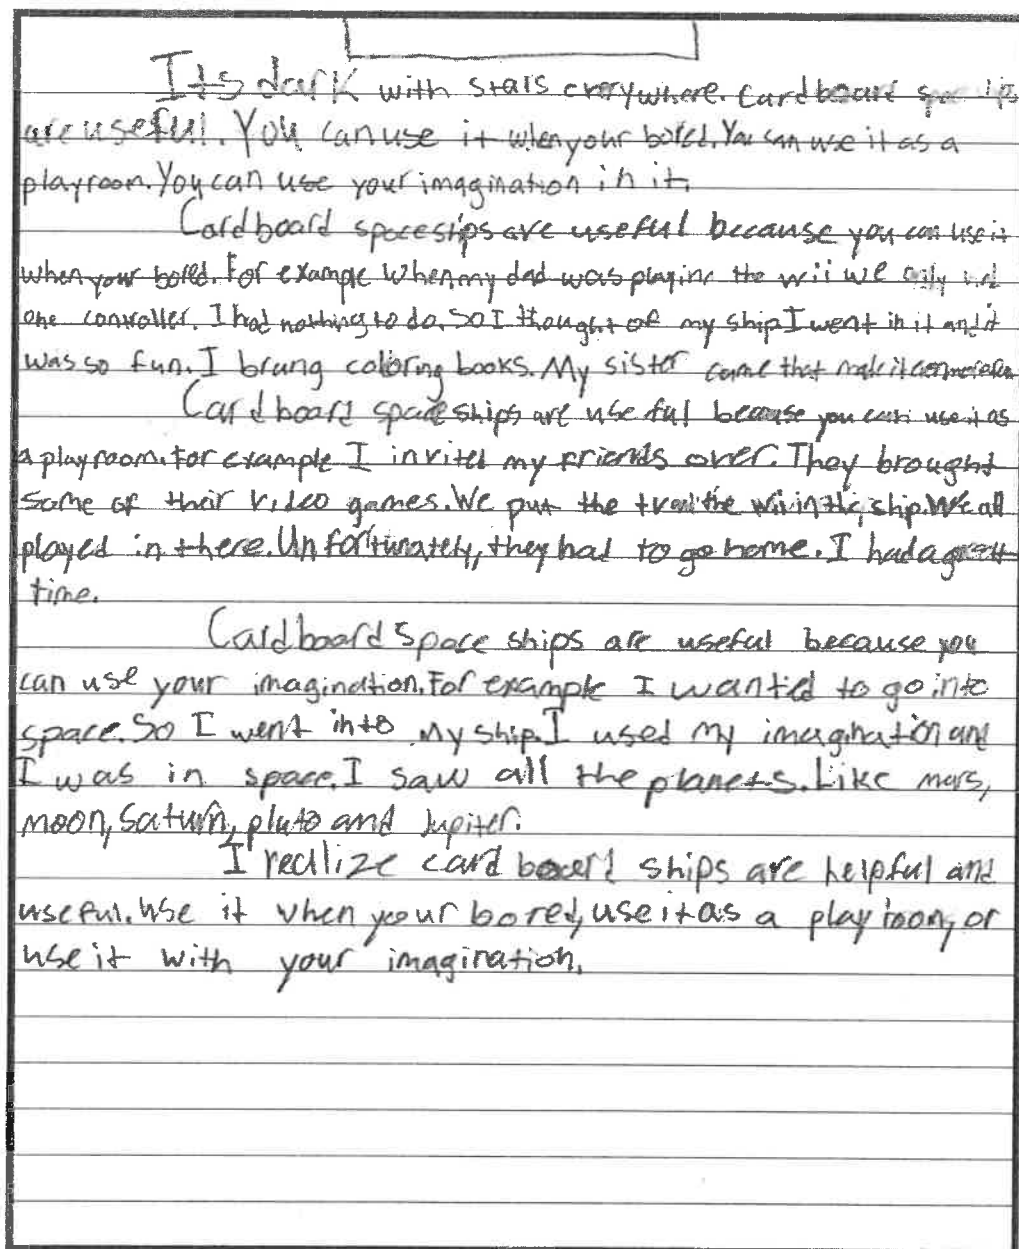 Its dark with stars everywhere. Cardboard spaceships
are useful. You can use it when your bored. You can use it as a
playroom. You can use your imagination in it.
Cardboard spaceships are useful because you can use it
when your bored. For example when my dad was playing the wii we only had
one controller. I had nothing to do. So I thought of my ship I went in it and it
was so fun. I brung coloring books. My sister came that make it
Cardboard spaceships are useful because you can use it as
a playroom. For example I invited my friends over. They brought
some of their video games. We put the the wii in the ship. We all
played in there. Unfortunately, they had to go home. I had a great
time.
Cardboard space ships are useful because you
can use your imagination. For example I wanted to go into
space. So I went into my ship. I used my imagination and
I was in space. I saw all the planets. Like mars,
moon, Saturn, pluto and Jupiter.
I realize card board ships are helpful and
useful. Use it when your bored, use it as a play room, or
use it with your imagination.